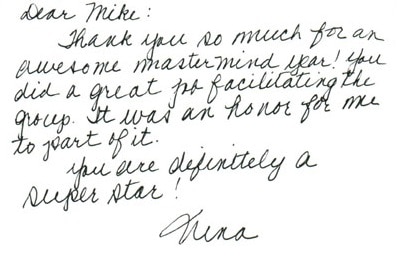 Dear Mike:
Thank you so much for an
awesome mastermind year! You
did a great jo facilitating the
group. It was an honor for me
to part of it.
You are definitely a
super star!
Nina